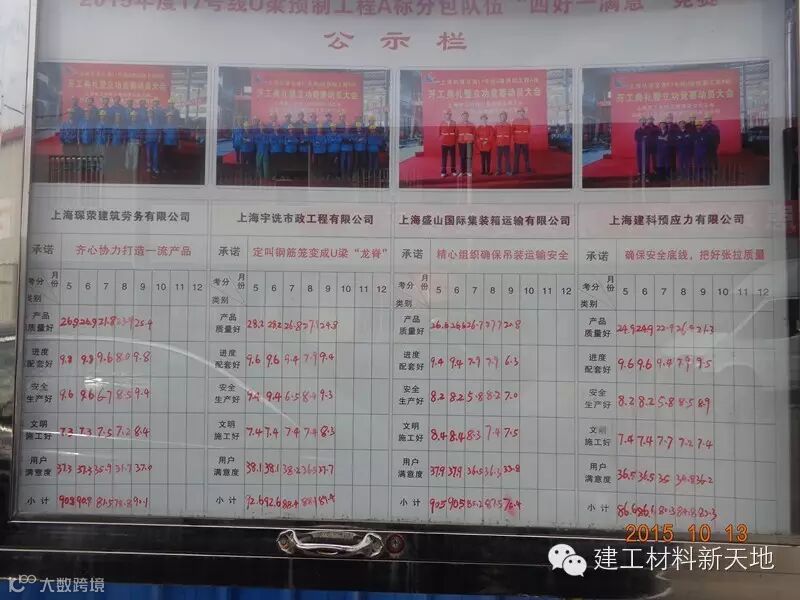 2015年度17号线U梁预制工程A标分包队伍“四好一满意”竞赛
公示栏
开工典礼暨立功竞赛动员大会
开工典礼暨立功竞赛动员大会
开工典礼暨立功竞赛动员大会
开工典礼暨立功竞赛动员大会
上海琛荣建筑劳务有限公司 上海宇诜市政工程有限公司 上海盛山国际集装箱运输有限公司 上海建科预应力有限公司
承诺 齐心协力打造一流产品 承诺 定叫钢筋笼变成U梁“龙脊” 承诺 精心组织确保吊装运输安全 承诺 确保安全底线，把好张拉质量
考分 月份 类别 5 6 7 8 9 10 11 12 考分 月份 类别 5 6 7 8 9 10 11 12 考分 月份 类别 5 6 7 8 9 10 11 12 考分 月份 类别 5 6 7 8 9 10 11 12
产品质量好 26.9 26.9 25.4 产品质量好 28.2 28.2 26.8 27.1 29.8 产品质量好 26.6 26.6 26.7 27.7 22.8 产品质量好 24.9 24.9 22.9 26.9 21.3
进度配套好 9.8 9.8 9.6 8.0 9.8 进度配套好 9.6 9.6 9.4 7.9 9.4 进度配套好 9.4 9.4 7.9 7.9 6.3 进度配套好 9.6 9.6 9.4 7.9 9.5
安全生产好 9.6 9.6 6.7 8.5 9.4 安全生产好 9.4 9.4 6.5 8.4 9.3 安全生产好 8.2 8.2 5.8 8.2 7.0 安全生产好 8.2 8.2 5.8 8.5 8.9
文明施工好 7.3 7.3 7.5 7.2 8.4 文明施工好 7.4 7.4 7.4 7.4 8.3 文明施工好 8.4 8.4 8.3 7.4 7.5 文明施工好 7.4 7.4 7.7 7.2 7.4
用户满意度 37.3 37.3 35.9 31.7 37.0 用户满意度 38.1 38.1 38.2 36.5 用户满意度 37.9 37.9 36.5 36.3 33.8 用户满意度 36.5 36.5 35 34.8 36.2
小计 90.9 90.9 90.1 小计 92.6 92.6 88.4 小计 90.5 90.5 85.2 87.5 小计 86.6 86.6 80.3 83.3
2015 10 13
建工材料新天地
大数跨境